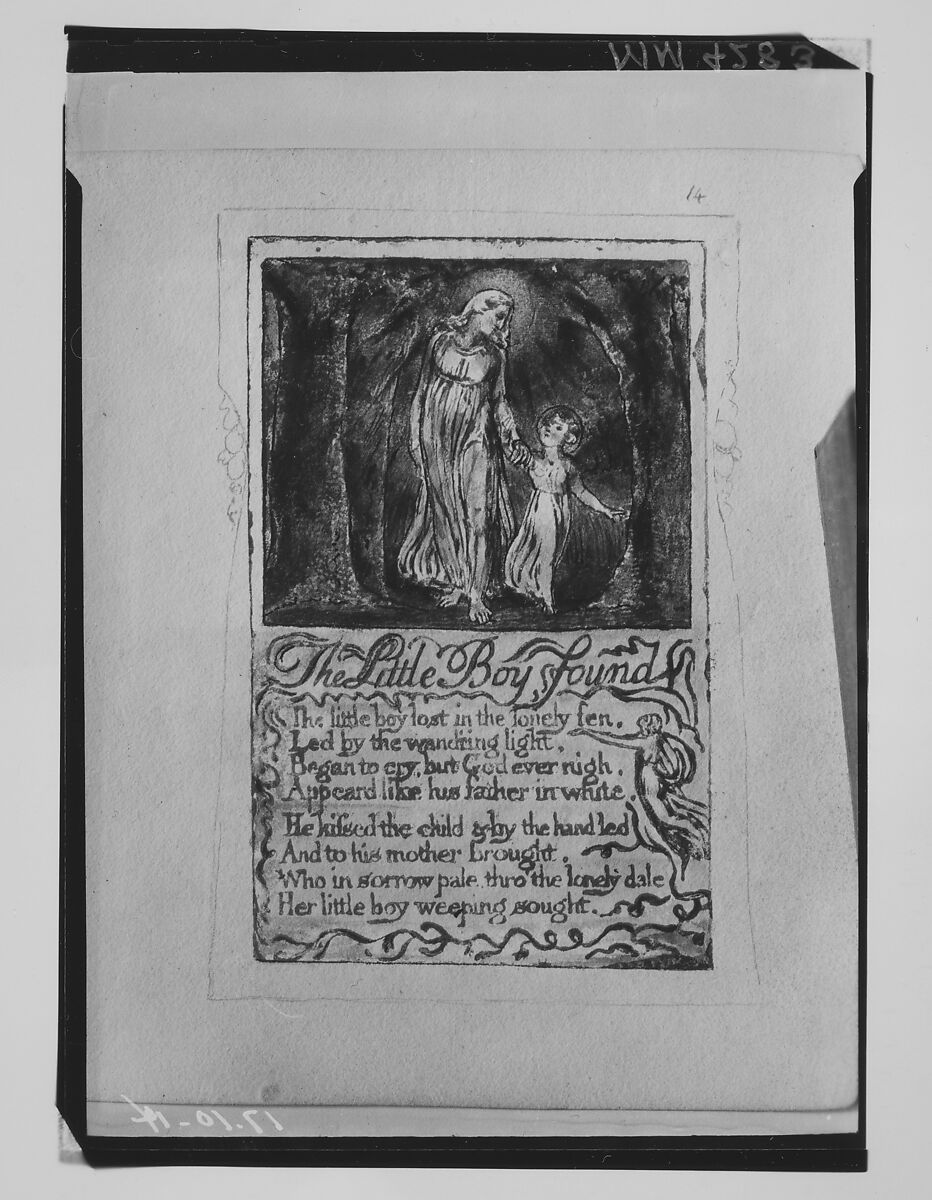 MM 4283
14
The Little Boy found
The little boy lost in the lonely fen,
Led by the wand'ring light,
Began to cry, but God ever nigh,
Appeard like his father in white.
He kissed the child & by the hand led
And to his mother brought,
Who in sorrow pale, thro' the lonely dale
Her little boy weeping sought.
17.10-14